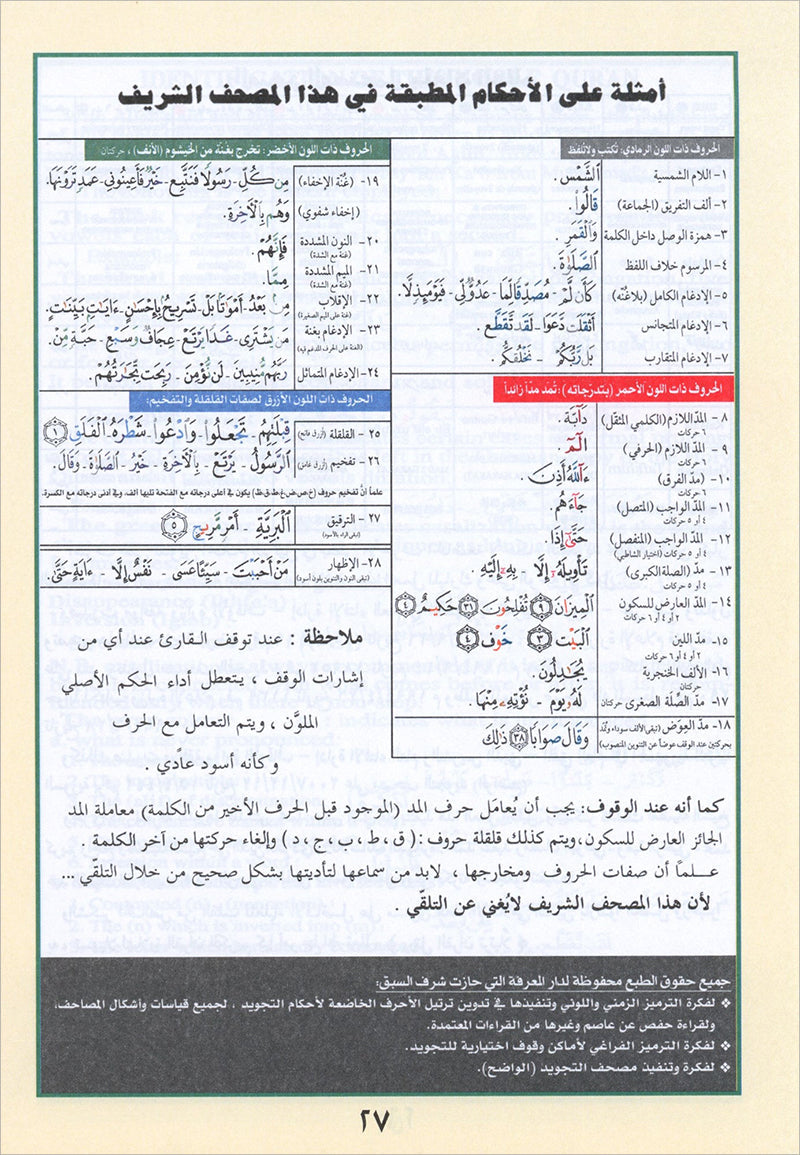 أمثلة على الأحكام المطبقة في هذا المصحف الشريف
الحروف ذات اللون الرمادي: تكتب ولا تلفظ
١- اللام الشمسية الشَّمْسَ.
٢- ألف التفريق (الجماعة) قَالُوا.
٣- همزة الوصل داخل الكلمة وَالْقَمَرِ.
٤- المرسوم خلاف اللفظ الصَّلَوٰةَ.
٥- الإدغام الكامل (بلا غنّه) كَأَن لَّمْ - مُصَدِّقًا لِّمَا - عَدُوٌّ لِّي - فَيَوْمَئِذٍ لَّا.
٦- الإدغام المتجانس أَثْقَلَت دَّعَوَا - لَقَد تَّقَطَّعَ.
٧- الإدغام المتقارب بَل رَّبُّكُمْ - نَخْلُقكُّم
الحروف ذات اللون الأحمر (بتدرّجاته): تُمدّ مدّاً زائداً
٨- المدّ اللازم (الكلمي المثقّل) دَآبَّة
٦ حركات
٩- المدّ اللازم (الحرفي) الٓمٓ
٦ حركات
١٠- (مدّ الفرق) ءَآللَّهُ أَذِنَ.
٦ حركات
١١- المدّ الواجب (المتصل) جَآءَهُم
٤ أو ٥ حركات
١٢- المدّ الواجب (المنفصل) حَتَّىٰٓ إِذَا.
٤ أو ٥ حركات (اختيار الشاطبي)
١٣- مدّ (الصلة الكبرى) تَأْوِيلَهُۥٓ إِلَّا - بِهِۦٓ إِلَيْهِ.
٤ أو ٥ حركات
١٤- مدّ العارض للسكون الْمِيزَانَ ٩ تُفْلِحُونَ ٣١ حَكِيمٌ ٤
٢ أو ٤ أو ٦ حركات
١٥- مدّ اللين الْبَيْتِ ٣ خَوْفٍ ٤
٢ أو ٤ أو ٦ حركات
١٦- الألف الخنجرية يُجَٰدِلُونَ.
حركتان
١٧- مدّ الصّلة الصغرى حركتان لَهُۥ يَوْمَ - نُؤْتِهِۦ مِنْهَا.
١٨- مدّ العِوَض (تبقى الألف سوداء وتُمَدّ وَقَالَ صَوَابًا ٣٨ ذَٰلِكَ
بحركتين عند الوقف عوضاً عن التنوين المنصوب)
الحروف ذات اللون الأخضر: تخرج بغنّه من الخيشوم (الأنف)، حركتان
١٩- (غُنّة الإخفاء) مِن كُلِّ - رَسُولًا فَنَتَّبِعَ - خَيْرٌ فَأَعِينُونِي - عَمَدٍ تَرَوْنَهَا.
(إخفاء شفوي) وَهُم بِالْآخِرَةِ.
٢٠- النون المشددة فَإِنَّهُمْ.
(غنة مع الشدة)
٢١- الميم المشددة مِمَّا.
(غنة مع الشدة)
٢٢- الإقلاب مِنۢ بَعْدُ - أَمْوَٰتٌۢ بَلْ - تَسْرِيحٌۢ بِإِحْسَٰنٍ - ءَايَٰتٍۭ بَيِّنَٰتٍ.
(غنة على الميم الصغيرة)
٢٣- الإدغام بغنة مَن يَشْتَرِي - غَدًا يَرْتَعْ - عِجَافٌ وَسَبْعِ - حَبَّةٍ مِّنْ.
(الغنة على الحرف المدغم فيه)
٢٤- الإدغام المتماثل رَبِّهِم مُّنِيبِينَ - لَن نُّؤْمِنَ - رَبِحَت تِّجَٰرَتُهُمْ.
الحروف ذات اللون الأزرق لصفات القلقلة والتفخيم:
٢٥- القلقلة (أزرق فاتح) قِبْلَتِهِمُ - تَجْعَلُوا - وَادْعُوا - شَطْرَهُ - الْفَلَقِ ١
٢٦- تفخيم (أزرق غامق) الرَّسُولُ - يَرْتَعْ - بِالْآخِرَةِ - خَيْرٌ - الصَّلَاةَ - وَقَالَ.
علماً أنّ تفخيم حروف (خ،ص،ض،غ،ط،ق،ظ) يكون في أعلى درجاته مع الفتحة تليها ألف، وفي أدنى درجاته مع الكسرة.
٢٧- الترقيق الْبَرِيَّةِ - أَمْرٍ مَّرِيجٍ ٥
(تبقى الراء بالأسود)
٢٨- الإظهار مَنْ أَحْبَبْتَ - سَيِّئًا عَسَى - نَفْسٌ إِلَّا - ءَايَةٍ حَتَّى.
(تبقى النون والتنوين بلون أسود)
ملاحظة : عند توقف القارئ عند أي من
إشارات الوقف ، يتعطل أداء الحكم الأصلي
الملوَّن ، ويتم التعامل مع الحرف
وكأنه أسود عادي .
كما أنه عند الوقوف: يجب أن يُعامَل حرف المد (الموجود قبل الحرف الأخير من الكلمة) معاملة المد
الجائز العارض للسكون،ويتم كذلك قلقلة حروف : ( ق ، ط ، ب ، ج ، د ) وإلغاء حركتها من آخر الكلمة .
علماً أن صفات الحروف ومخارجها ، لابد من سماعها لتأديتها بشكل صحيح من خلال التلقّي ...
لأن هذا المصحف الشريف لا يُغني عن التلقي .
جميع حقوق الطبع محفوظة لدار المعرفة التي حازت شرف السبق:
❖ لفكرة الترميز الزمني واللوني وتنفيذها في تدوين ترتيل الأحرف الخاضعة لأحكام التجويد ، لجميع قياسات وأشكال المصاحف،
ولقراءة حفص عن عاصم وغيرها من القراءات المعتمدة.
❖ لفكرة الترميز الفراغي لأماكن وقوف اختيارية للتجويد.
❖ لفكرة وتنفيذ مصحف التجويد (الواضح).
٢٧